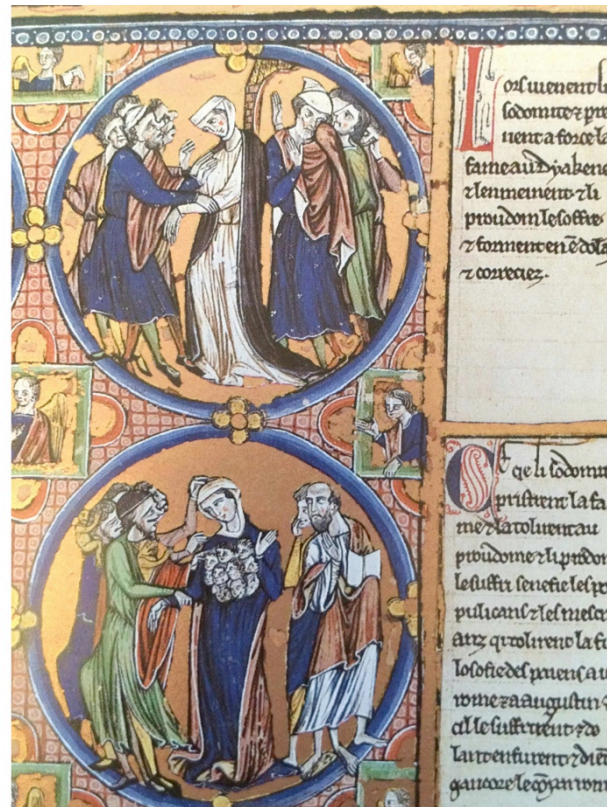 Lors vienent li
sodomite & pre
nent a force la
fame au dyakene
& lenmeinent & li
proudom le soffre
& forment en e dola
& correciez.
Ce qe li sodomit
pristrent la fa
me & la tolirent au
proudome & li prodom
le suffri senefie les po
pulicans & les mescr
anz qi tolirent la fi
losofie des paiens a
rome & a augustin &
cil le suffrirent & do
lant en furent & dient
qancore le